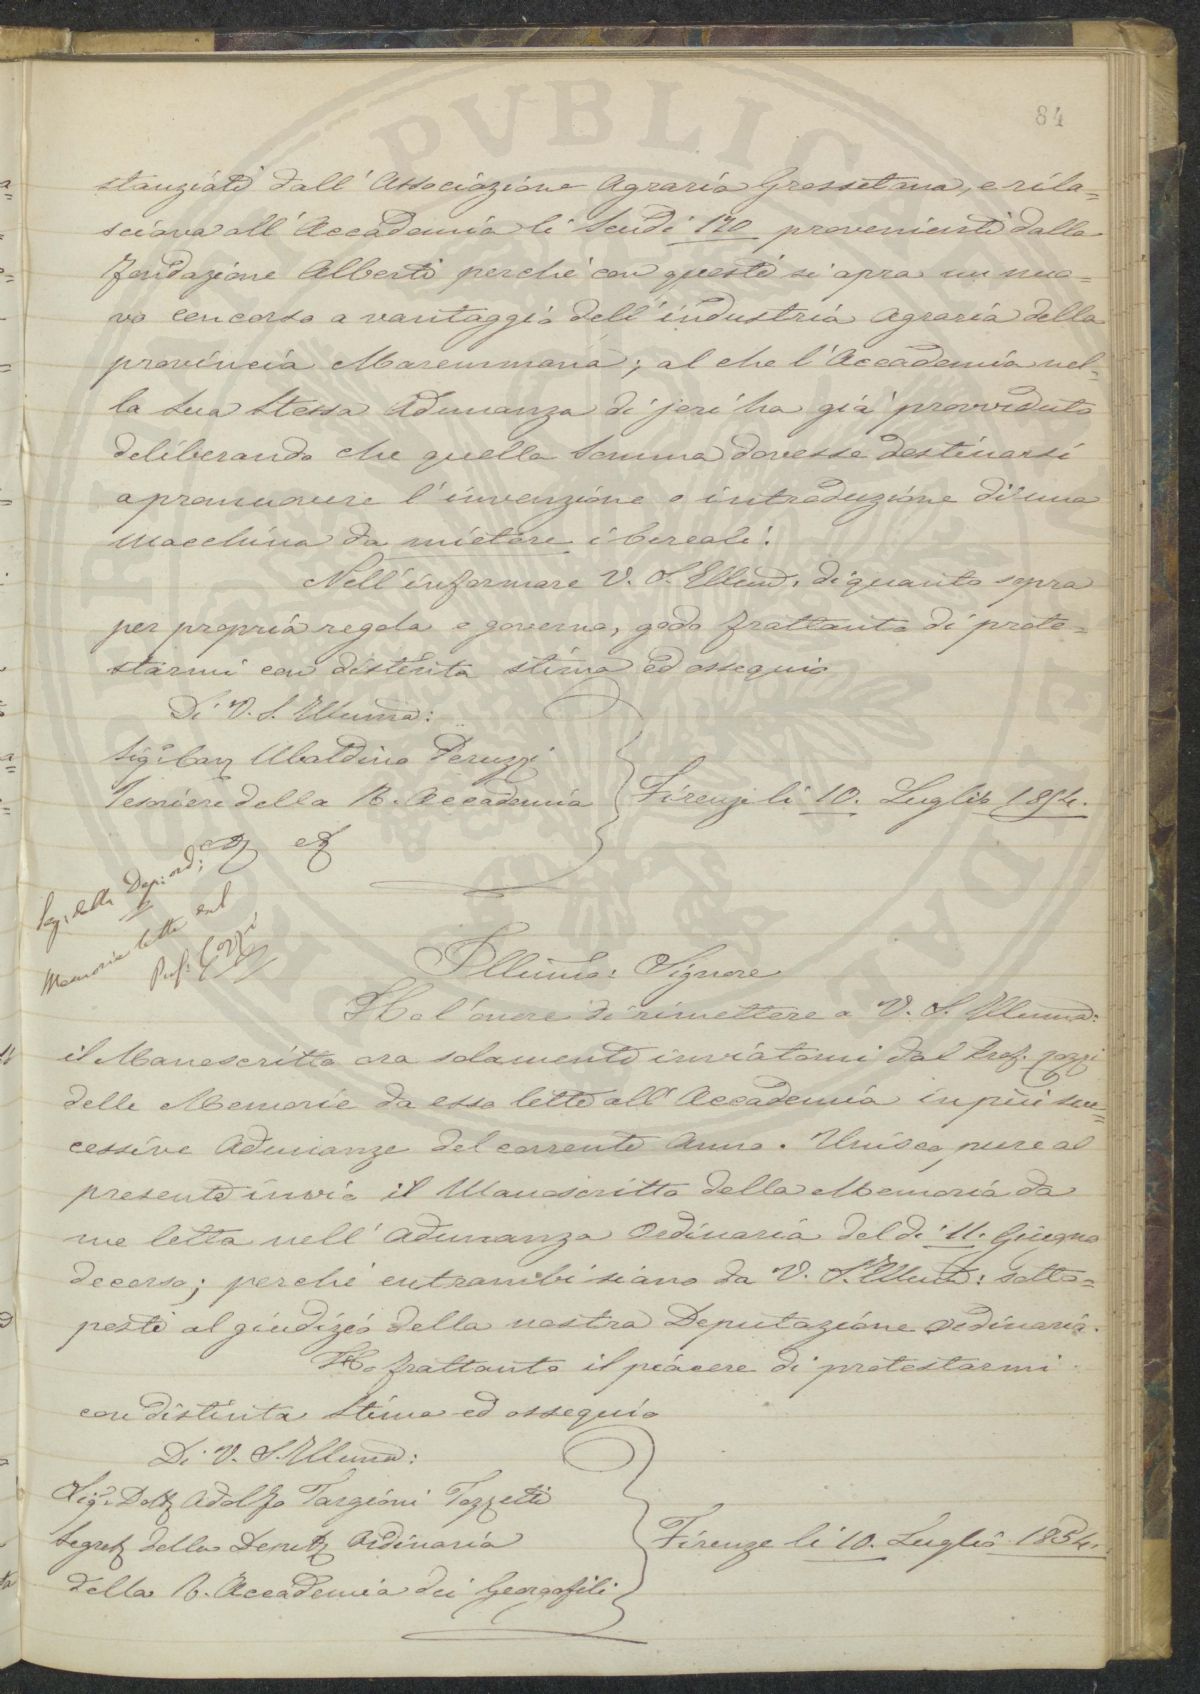 84
stanziati dall' Associazione Agraria Grossetana, e rila=
sciava all' Accademia li Scudi 120 provenienti dalla
fondazione Alberti perchè con questi si apra un nuo=
vo concorso a vantaggio dell' industria Agraria della
provincia Maremmana; al che l' Accademia nel=
la sua stessa Adunanza di jeri ha già provveduto
deliberando che quella Somma dovesse destinarsi
a promuovere l' invenzione o introduzione di una
Macchina da mietere i Cereali.
Nell' informare V. S. Illma: di quanto sopra
per propria regola e governo, godo frattanto di prote=
starmi con distinta stima ed ossequio
Di V. S. Illuma:
Sigr. Cav. Ubaldino Peruzzi
Tesoriere della R. Accademia
Firenze li 10. Luglio 1854.
Seg: della Dep: ord:
Memorie lette dal
Prof: Gozzi
Illumo: Signore
Ho l' onore di rimettere a V. S. Illuma:
il Manoscritto ora solamente inviatomi dal Prof. Gozzi
delle Memorie da esso lette all' Accademia in più suc=
cessive Adunanze del corrente Anno. Unisco pure al
presente invio il Manoscritto della Memoria da
me letta nell' Adunanza Ordinaria del dì 11. Giugno
decorso; perchè entrambi siano da V. S. Illma: sotto=
posti al giudizio della nostra Deputazione Ordinaria.
Ho frattanto il piacere di protestarmi
con distinta Stima ed ossequio
Di V. S. Illuma:
Sigr. Dott. Adolfo Targioni Tozzetti
Segret. della Deput. Ordinaria
della R. Accademia dei Georgofili
Firenze li 10. Luglio 1854.